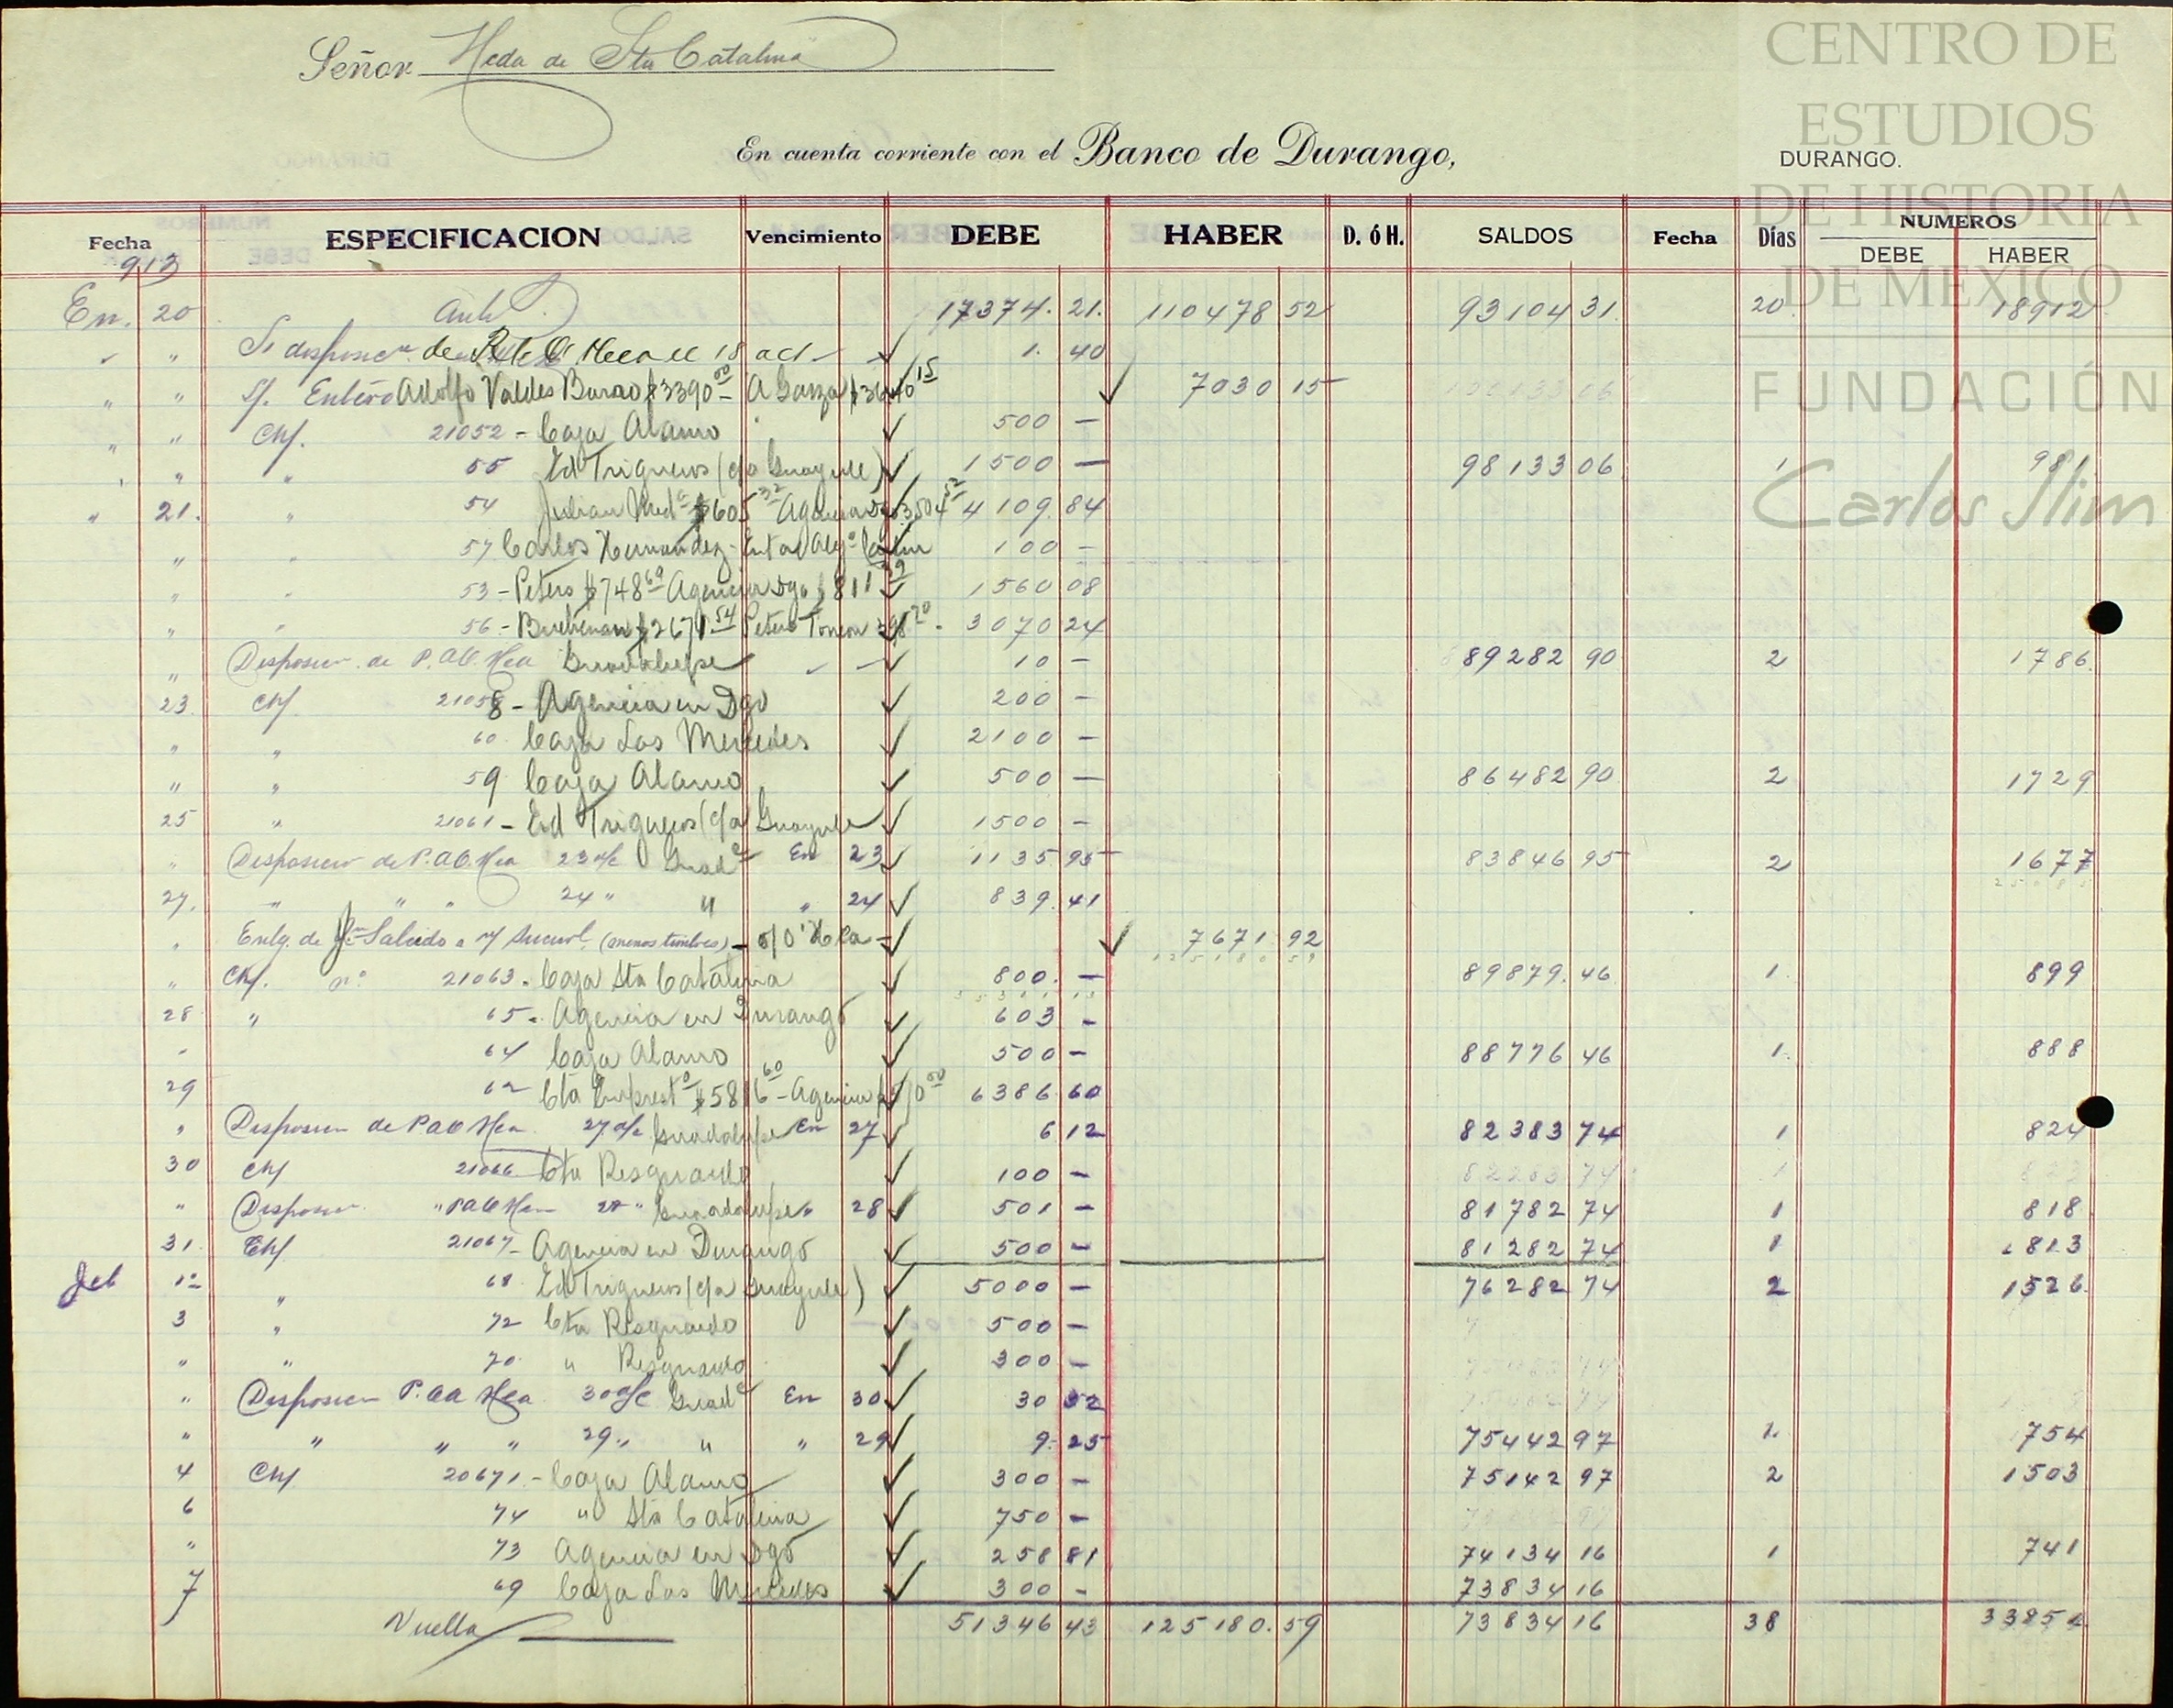 CENTRO DE
ESTUDIOS
DE HISTORIA
DE MEXICO
FUNDACIÓN
Carlos Slim
Señor Hcda de Sta Catalina
En cuenta corriente con el Banco de Durango,
DURANGO.
Fecha ESPECIFICACION Vencimiento DEBE HABER D. ó H. SALDOS Fecha Días NUMEROS
DEBE HABER
913
En. 20 17374.21. 110478 52 93104 31. 20. 18912
" " de 18 1. 40
" " Entero Adolfo Valdes Burao $3390 00 - A Garza $3640 15 7030 15
" " Ch/. 21052 - Caja Alamo 500 —
" " " 55 Ed Trigueros (c/a Guayule) 1500 — 98133 06 1 981
" 21. " 54 Julian $605 32 Agencia Dgo 3504 52 4109.84
" " 57 Carlos Hernandez 100 —
" " 53 - Peters $748 69 Agencia Dgo $811 39 1560 08
" " 56 - Buchenau $2671 54 Peters Torreon 398 70 3070 24
" Disposicn. de P.AO. Hca Guadalupe 10 — 89282 90 2 1786.
23. Ch/ 21058 - Agencia en Dgo 200 —
" " 60 Caja Las Mercedes 2100 —
" " 59 Caja Alamo 500 — 86482 90 2 1729
25 " 21061 - Ed Trigueros (c/a Guayule 1500 —
" Disposicn de P.AO. Hca 23 o/c Guade En 23 1135 95 83846 95 2 1677
27. " " " 24 " " " 24 839.41
" Entg. de Salcido a n/ Sucurl. (menos timbres) - 7671 92
" Ch/. no. 21063 - Caja Sta Catalina 800. — 89879.46 1. 899
28 " 65 - Agencia en Durango 603 —
" 64 Caja Alamo 500 — 88776 46 1. 888
29 62 Cta Emprest o $5816 60 - Agencia 6386 60
" Disposicn de P.AO Hca 27 o/c Guadalupe En 27 6 12 82383 74 1 824
30 Ch/ 21066 Cta Resguardo 100 — 82283 74 1 823
" Disposicn. " P.AO Hca 28 " Guadalupe " 28 501 — 81782 74 1 818
31. Ch/ 21067 - Agencia en Durango 500 — 81282 74 1 813
Feb 1º " 68. Ed Trigueros (c/a Guayule) 5000 — 76282 74 2 1526.
3 " 72 Cta Resguardo 500 —
" " 70. " Resguardo 300 —
" Disposicn P.AO Hca 30 o/c Guade En 30 30 52
" " " " 29 " " " 29 9. 25 75442 97 1. 754
4 Ch/ 20671 - Caja Alamo 300 — 75142 97 2 1503
6 74 " Sta Catalina 750 —
" 73 Agencia en Dgo 258 81 74134 16 1 741
7 69 Caja Las Mercedes 300 — 73834 16
Vuelta 51346 43 125180.59 73834 16 38 33854